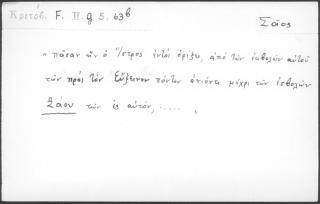 Κριτόβ. F. II. g 5. 63b
Σάος
" πᾶσαν ὧν ὁ Ἴστρος ἐντὸς ὁρίζει, ἀπὸ τῶν ἐκβολῶν αὐτοῦ
τῶν πρὸς τὸν Εὔξεινον πόντον ἀνιόντι μέχρι τῶν ἐσβολῶν
Σάου τῶν ἐς αὐτόν, ..... "